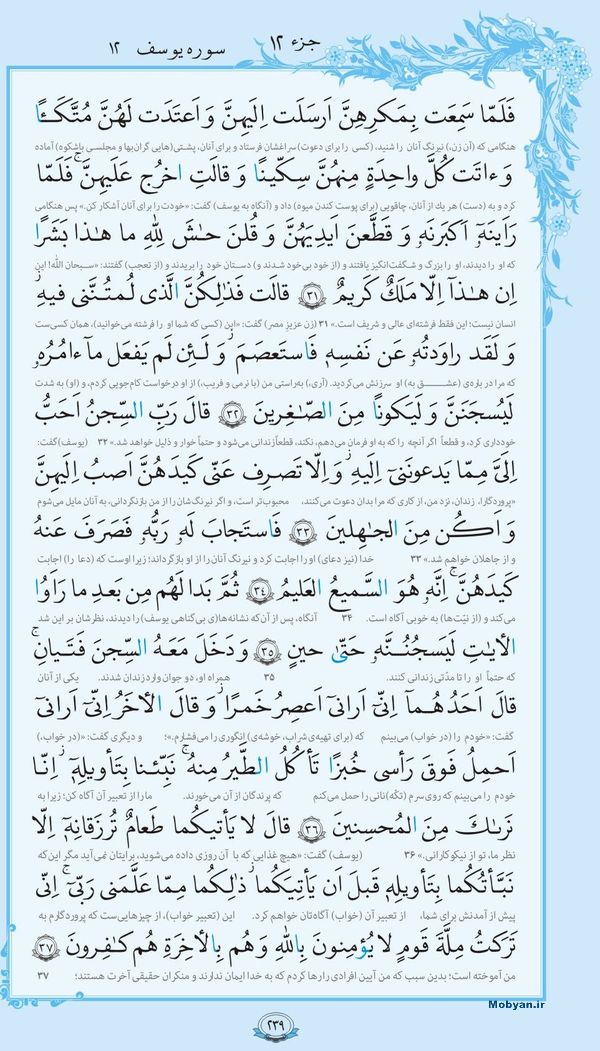 جزء ۱۲
سوره یوسف ۱۲
فَلَمّا سَمِعَت بِمَكرِهِنَّ اَرسَلَت اِلَيهِنَّ وَ اَعتَدَت لَهُنَّ مُتَّكَـًٔا
هنگامی که (آن زن،) نیرنگ آنان را شنید، (کسی را برای دعوت) سراغشان فرستاد و برای آنان، پشتی(هایی گران‌بها و مجلسی باشکوه) آماده
وَ ءاتَت كُلَّ واحِدَةٍ مِنهُنَّ سِكّينًا وَ قالَتِ اخرُج عَلَيهِنَّ ۚ فَلَمّا
کرد و به (دست) هر یک از آنان، چاقویی (برای پوست کندن میوه) داد و (آنگاه به یوسف) گفت: «خودت را برای آنان آشکار کن.» پس هنگامی
رَاَينَهٗ اَكبَرنَهٗ وَ قَطَّعنَ اَيدِيَهُنَّ وَ قُلنَ حٰشَ لِلّٰهِ ما هٰذا بَشَرًا
که او را دیدند، او را بزرگ و شگفت‌انگیز یافتند و (از خود بی‌خود شدند و) دستان خود را بریدند و (از تعجب) گفتند: «سبحان الله! این
اِن هٰذا اِلّا مَلَكٌ كَريمٌ ﴿۳۱﴾ قالَت فَذٰلِكُنَّ الَّذى لُمتُنَّنى فيهِ ۖ
انسان نیست؛ این فقط فرشته‌ای عالی و شریف است.» ۳۱ (زن عزیز مصر) گفت: «این (کسی که شما او را فرشته می‌خوانید)، همان کسی‌ست
وَ لَقَد راوَدتُهٗ عَن نَفسِهٖ فَاستَعصَمَ ۖ وَ لَئِن لَم يَفعَل ما ءامُرُهٗ
که مرا در باره‌ی (عشق به) او سرزنش می‌کردید. (آری،) به‌راستی من (با نرمی و فریب،) از او درخواست کام‌جویی کردم، و (او) به شدت
لَيُسجَنَنَّ وَ لَيَكونًا مِنَ الصّٰغِرينَ ﴿۳۲﴾ قالَ رَبِّ السِّجنُ اَحَبُّ
خودداری کرد، و قطعاً اگر آنچه را که به او فرمان می‌دهم، نکند، قطعاً زندانی می‌شود و حتماً خوار و ذلیل خواهد شد.» ۳۲ (یوسف) گفت:
اِلَىَّ مِمّا يَدعونَنى اِلَيهِ ۖ وَ اِلّا تَصرِف عَنّى كَيدَهُنَّ اَصبُ اِلَيهِنَّ
«پروردگارا، زندان، نزد من، از کاری که مرا بدان دعوت می‌کنند، محبوب‌تر است، و اگر نیرنگ‌شان را از من بازنگردانی، به آنان مایل می‌شوم
وَ اَكُن مِنَ الجٰهِلينَ ﴿۳۳﴾ فَاستَجابَ لَهٗ رَبُّهٗ فَصَرَفَ عَنهُ
و از جاهلان خواهم شد.» ۳۳ خدا (نیز دعای) او را اجابت کرد و نیرنگ آنان را از او بازگرداند؛ زیرا اوست که (دعا را) اجابت
كَيدَهُنَّ ۚ اِنَّهٗ هُوَ السَّميعُ العَليمُ ﴿۳۴﴾ ثُمَّ بَدا لَهُم مِن بَعدِ ما رَاَوُا
می‌کند و (از نیّت‌ها) به خوبی آگاه است. ۳۴ آنگاه، پس از آن که نشانه‌ها(ی بی‌گناهی یوسف) را دیدند، نظرشان بر این شد
الأيٰتِ لَيَسجُنُنَّهٗ حَتّىٰ حينٍ ﴿۳۵﴾ وَ دَخَلَ مَعَهُ السِّجنَ فَتَيانِ ۖ
که حتماً او را تا مدّتی زندانی کنند. ۳۵ همراه او، دو جوان وارد زندان شدند. یکی از آنان
قالَ اَحَدُهُما اِنّى اَرانى اَعصِرُ خَمرًا ۖ وَ قالَ الأخَرُ اِنّى اَرانى
گفت: «خودم را (در خواب) می‌بینم که (برای تهیه‌ی شراب، خوشه‌ی) انگوری را می‌فشارم.»؛ و دیگری گفت: «(در خواب،)
اَحمِلُ فَوقَ رَأسى خُبزًا تَأكُلُ الطَّيرُ مِنهُ ۖ نَبِّئنا بِتَأويلِهٖ ۖ اِنّا
خودم را می‌بینم که روی سرم (تکّه) نانی را حمل می‌کنم که پرندگان از آن می‌خورند. ما را از تعبیر آن آگاه کن؛ زیرا به
نَرىٰكَ مِنَ المُحسِنينَ ﴿۳۶﴾ قالَ لا يَأتيكُما طَعامٌ تُرزَقانِهٖ اِلّا
نظر ما، تو از نیکوکارانی.» ۳۶ (یوسف) گفت: «هیچ غذایی که با آن روزی داده می‌شوید، برایتان نمی‌آید مگر این‌که
نَبَّأتُكُما بِتَأويلِهٖ قَبلَ اَن يَأتِيَكُما ۚ ذٰلِكُما مِمّا عَلَّمَنى رَبّى ۚ اِنّى
پیش از آمدنش برای شما، از تعبیر آن (خواب) آگاه‌تان خواهم کرد. این (تعبیر خواب)، از چیزهایی‌ست که پروردگارم به
تَرَكتُ مِلَّةَ قَومٍ لا يُؤمِنونَ بِاللّٰهِ وَ هُم بِالأخِرَةِ هُم كٰفِرونَ ﴿۳۷﴾
من آموخته است؛ بدین سبب که من آیین افرادی را رها کردم که به خدا ایمان ندارند و منکران حقیقی آخرت هستند؛ ۳۷
۲۳۹
Mobyan.ir